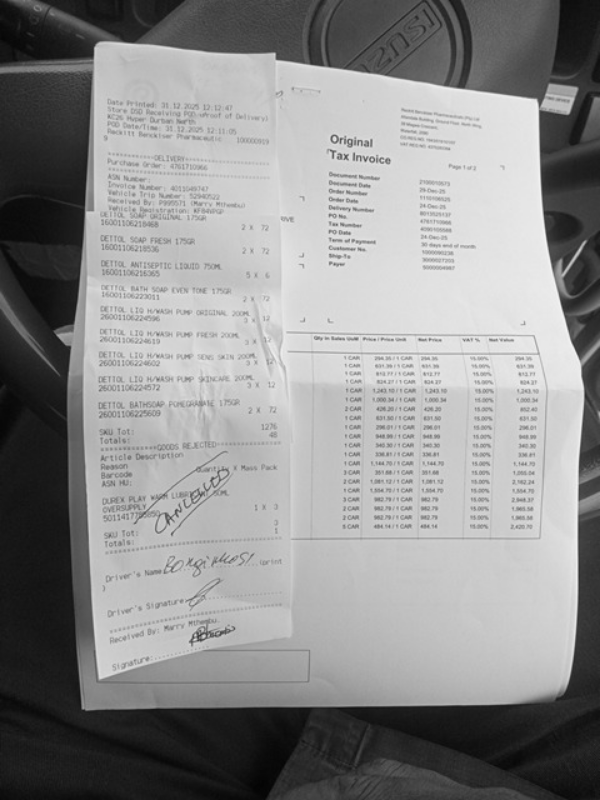 ISUZU
Date Printed: 31.12.2025 12:12:47
Store DSD Receiving POD:(Proof of Delivery)
KC26 Hyper Durban North
POD Date/Time: 31.12.2025 12:11:05
Reckitt Benckiser Pharmaceutic 100000919
9
DELIVERY
Purchase Order: 4761710966
ASN Number:
Invoice Number: 4011049747
Vehicle Trip Number: 52940522
Received By: P995571 (Marry Mthembu)
Vehicle Registration:
DETTOL SOAP ORIGINAL 175GR
16001106218468 2 X 72
DETTOL SOAP FRESH 175GR
16001106218536 2 X 72
DETTOL ANTISEPTIC LIQUID 750ML
16001106216365 5 X 6
DETTOL BATH SOAP EVEN TONE 175GR
16001106223011 2 X 72
DETTOL LIQ H/WASH PUMP ORIGINAL 200ML
26001106224596 3 X 12
DETTOL LIQ H/WASH PUMP FRESH 200ML
26001106224619 3 X 12
DETTOL LIQ H/WASH PUMP SENS SKIN 200ML
26001106224602 3 X 12
DETTOL LIQ H/WASH PUMP SKINCARE 200ML
26001106224572 3 X 12
DETTOL BATHSOAP POMEGRANATE 175GR
26001106225609 2 X 72
SKU Tot: 1276
Totals: 48
GOODS REJECTED
Article Description
Reason
Barcode Quantity X Mass Pack
ASN HU:
DUREX PLAY WARM LUBRICANT 50ML
OVERSUPPLY 1 X 3
CANCELLED
SKU Tot: 3
Totals: 1
Driver's Name: Bonginkosi (print
)
Driver's Signature:
Received By: Marry Mthembu.
Signature:
Original
Tax Invoice
Page 1 of 2
Document Number
Document Date 29-Dec-25
Order Number
Order Date 24-Dec-25
Delivery Number
PO No. 4761710966
Tax Number
PO Date 24-Dec-25
Term of Payment 30 days end of month
Customer No.
Ship-To
Payer
Qty in Sales UoM Price / Price Unit Net Price VAT % Net Value
1 CAR 294.35 / 1 CAR 294.35 15.00% 294.35
1 CAR 631.39 / 1 CAR 631.39 15.00% 631.39
1 CAR 612.77 / 1 CAR 612.77 15.00% 612.77
1 CAR 624.27 / 1 CAR 624.27 15.00% 624.27
1 CAR 1,243.10 / 1 CAR 1,243.10 15.00% 1,243.10
1 CAR 1,000.34 / 1 CAR 1,000.34 15.00% 1,000.34
2 CAR 426.20 / 1 CAR 426.20 15.00% 852.40
1 CAR 631.50 / 1 CAR 631.50 15.00% 631.50
1 CAR 296.01 / 1 CAR 296.01 15.00% 296.01
1 CAR 948.99 / 1 CAR 948.99 15.00% 948.99
1 CAR 340.30 / 1 CAR 340.30 15.00% 340.30
1 CAR 336.81 / 1 CAR 336.81 15.00% 336.81
1 CAR 1,144.70 / 1 CAR 1,144.70 15.00% 1,144.70
3 CAR 351.68 / 1 CAR 351.68 15.00%
2 CAR 1,081.12 / 1 CAR 1,081.12 15.00% 2,162.24
1 CAR 1,554.70 / 1 CAR 1,554.70 15.00% 1,554.70
3 CAR 982.79 / 1 CAR 982.79 15.00% 2,948.37
2 CAR 982.79 / 1 CAR 982.79 15.00% 1,965.58
2 CAR 982.79 / 1 CAR 982.79 15.00% 1,965.58
5 CAR 484.14 / 1 CAR 484.14 15.00% 2,420.70